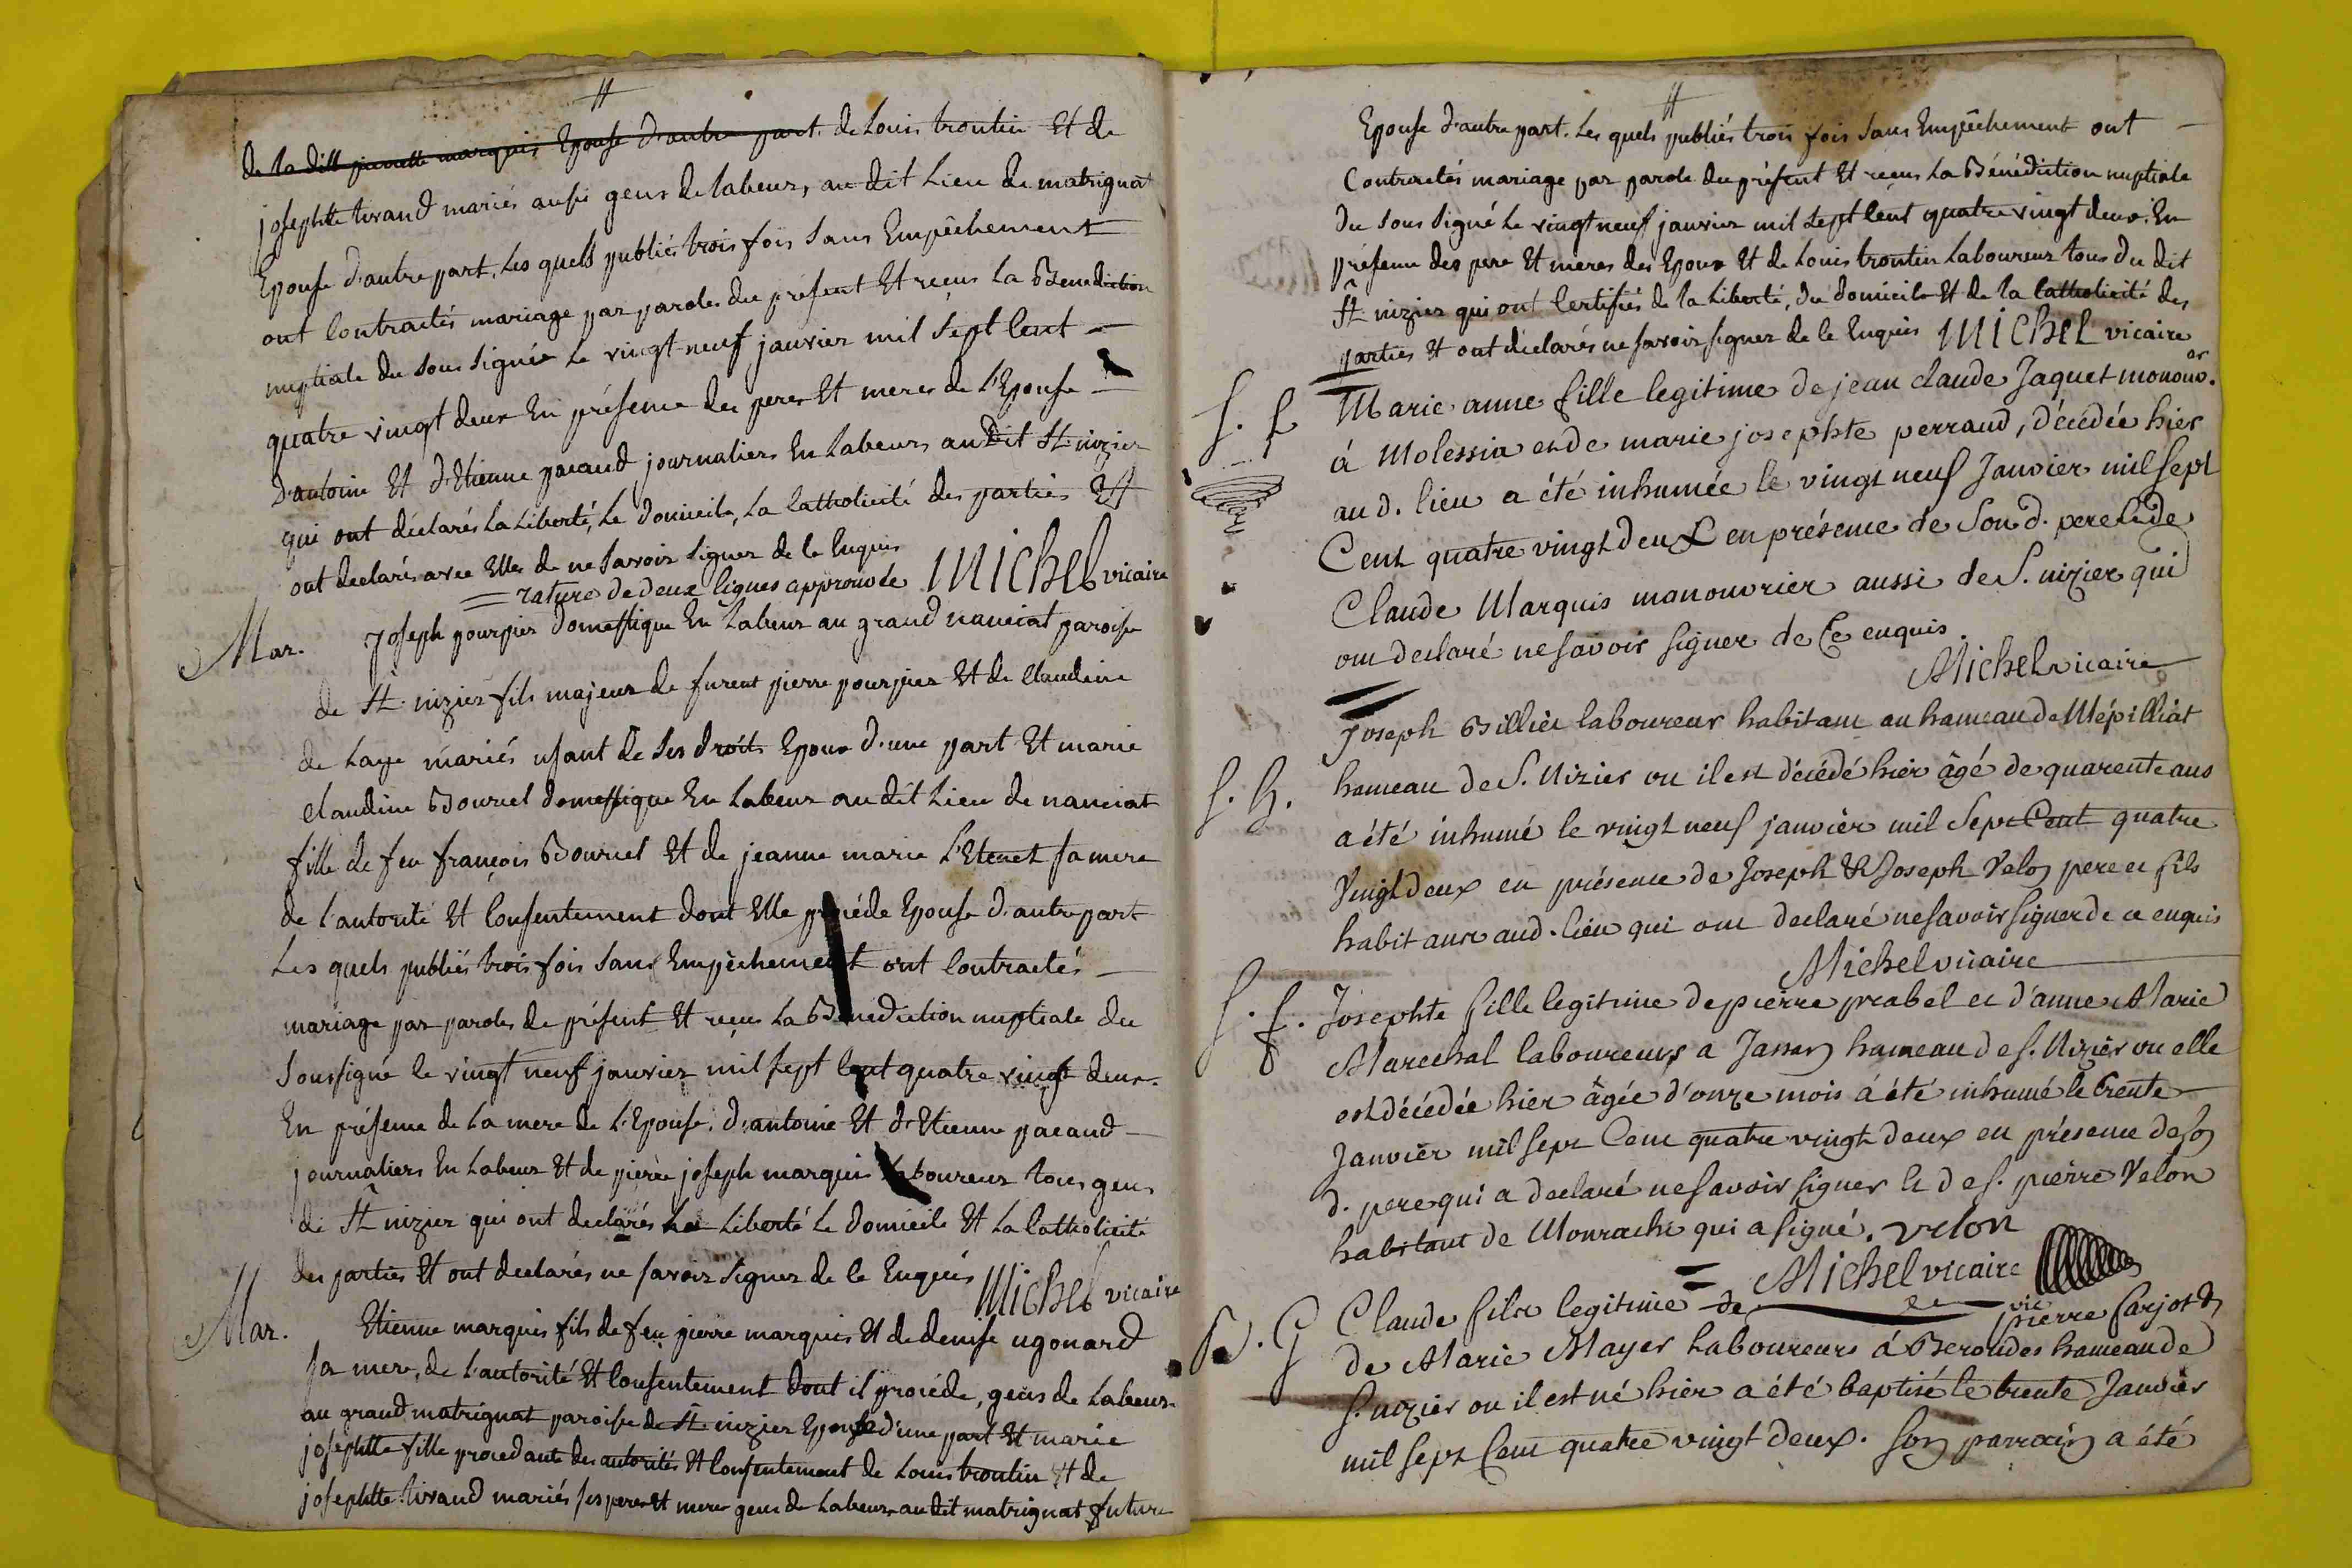 de la ditte pierrette marquis Epouse d'autre part. de Louis trontin Et de
josephte tirand mariés aussi gens de labeur, au dit Lieu de matrignat
Epouse d'autre part, Les quels publiés trois fois sans Empêchement
ont Contractés mariage par paroles du présent Et reçus La Benediction
nuptiale du sous signé Le vingt-neuf janvier mil sept Cent
quatre vingt deux En présence des peres Et meres de L'Epouse
d'antoine Et d'Etienne pacaud journaliers En Labeurs au dit St nizier
qui ont déclarés La Liberté, Le Domicile, La Catholicité des parties Et
ont declarés avec Elles de ne savoir signer de Ce Enquis
= rature de deux lignes approuvée Michel vicaire
Mar. Joseph pourpier Domestique En Labeur au grand nanciat paroisse
de St nizier fils majeur de furent pierre pourpier Et de Claudine
de Laye mariés usant de ses droits Epoux d'une part Et marie
Claudine Bourcel domestique En Labeur au dit Lieu de nanciat
fille de feu françois Bourcel Et de jeanne marie L'Etenet sa mere
de l'autorité Et Consentement dont Elle procéde Epouse d'autre part
Les quels publiés trois fois sans Empêchement ont Contractés
mariage par paroles de présent Et reçus La Bénédiction nuptiale du
soussigné le vingt neuf janvier mil sept Cent quatre vingt deux.
En présence de La mere de L'Epouse, d'antoine Et d'Etienne pacaud
journaliers En Labeur Et de pierre joseph marquis Laboureur tous gens
de St nizier qui ont declarés La Liberté Le Domicile Et La Catholicité
des parties Et ont declarés ne savoir signer de Ce Enquis Michel vicaire
Mar. Etienne marquis fils de feu pierre marquis Et de denise ugonard
sa mere, de L'autorité Et Consentement dont il procéde, gens de Labeur
au grand matrignat paroisse de St nizier Epoux d'une part Et marie
josephte fille procedante des autorités Et Consentement de Louis trontin Et de
josephte tirand mariés ses pere Et mere gens de Labeur au dit matrignat future
Epouse d'autre part. Les quels publiés trois fois sans Empêchement ont
Contractés mariage par parole du présent Et reçus La Bénédiction nuptiale
du sous signé Le vingt neuf janvier mil sept Cent quatre vingt deux. En
présence des pere Et meres des Epoux Et de Louis trontin Laboureur tous du dit
St nizier qui ont Certifiés de la Liberté, du domicile Et de la Catholicité des
parties Et ont déclarés ne savoir signer de Ce Enquis Michel vicaire
S. f. Marie anne fille legitime de jean claude Jaquet monouv.er
à Molessia et de marie josephte perraud, décédée hier
au d. lieu a été inhumée le vingt neuf Janvier mil sept
Cent quatre vingt deux en présence de Son d. pere & de
Claude Marquis manouvrier aussi de S. nizier qui
ont declaré ne savoir signer de Ce enquis.
Michel vicaire
Joseph Billier laboureur habitant au hameau de Mépilliat
S. h. hameau de S. Nizier ou il est décédé hier âgé de quarente ans
a été inhumé le vingt neuf janvier mil Sept Cent quatre
Vingt deux en présence de Joseph & Joseph Velon pere et fils
habitants aud. lieu qui ont declaré ne savoir signer de ce enquis
Michel vicaire
S. f. Josephte fille legitime de pierre prabel et d'anne Marie
Marechal laboureurs a Jassan hameau de S. Nizier ou elle
est décédée hier âgée d'onze mois à été inhumé le trente
Janvier mil sept Cent quatre vingt deux en présence de son
d. pere qui a declaré ne savoir signer & de s. pierre Velon
habitant de Monrachi qui a signé. velon
Michel vicaire
B. G Claude fils legitime de pierre Carjot &
de Marie Mayer Laboureurs à Beroudes hameau de
S. nizier ou il est né hier a été baptisé le trente Janvier
mil sept Cent quatre vingt deux. Son parrain a été